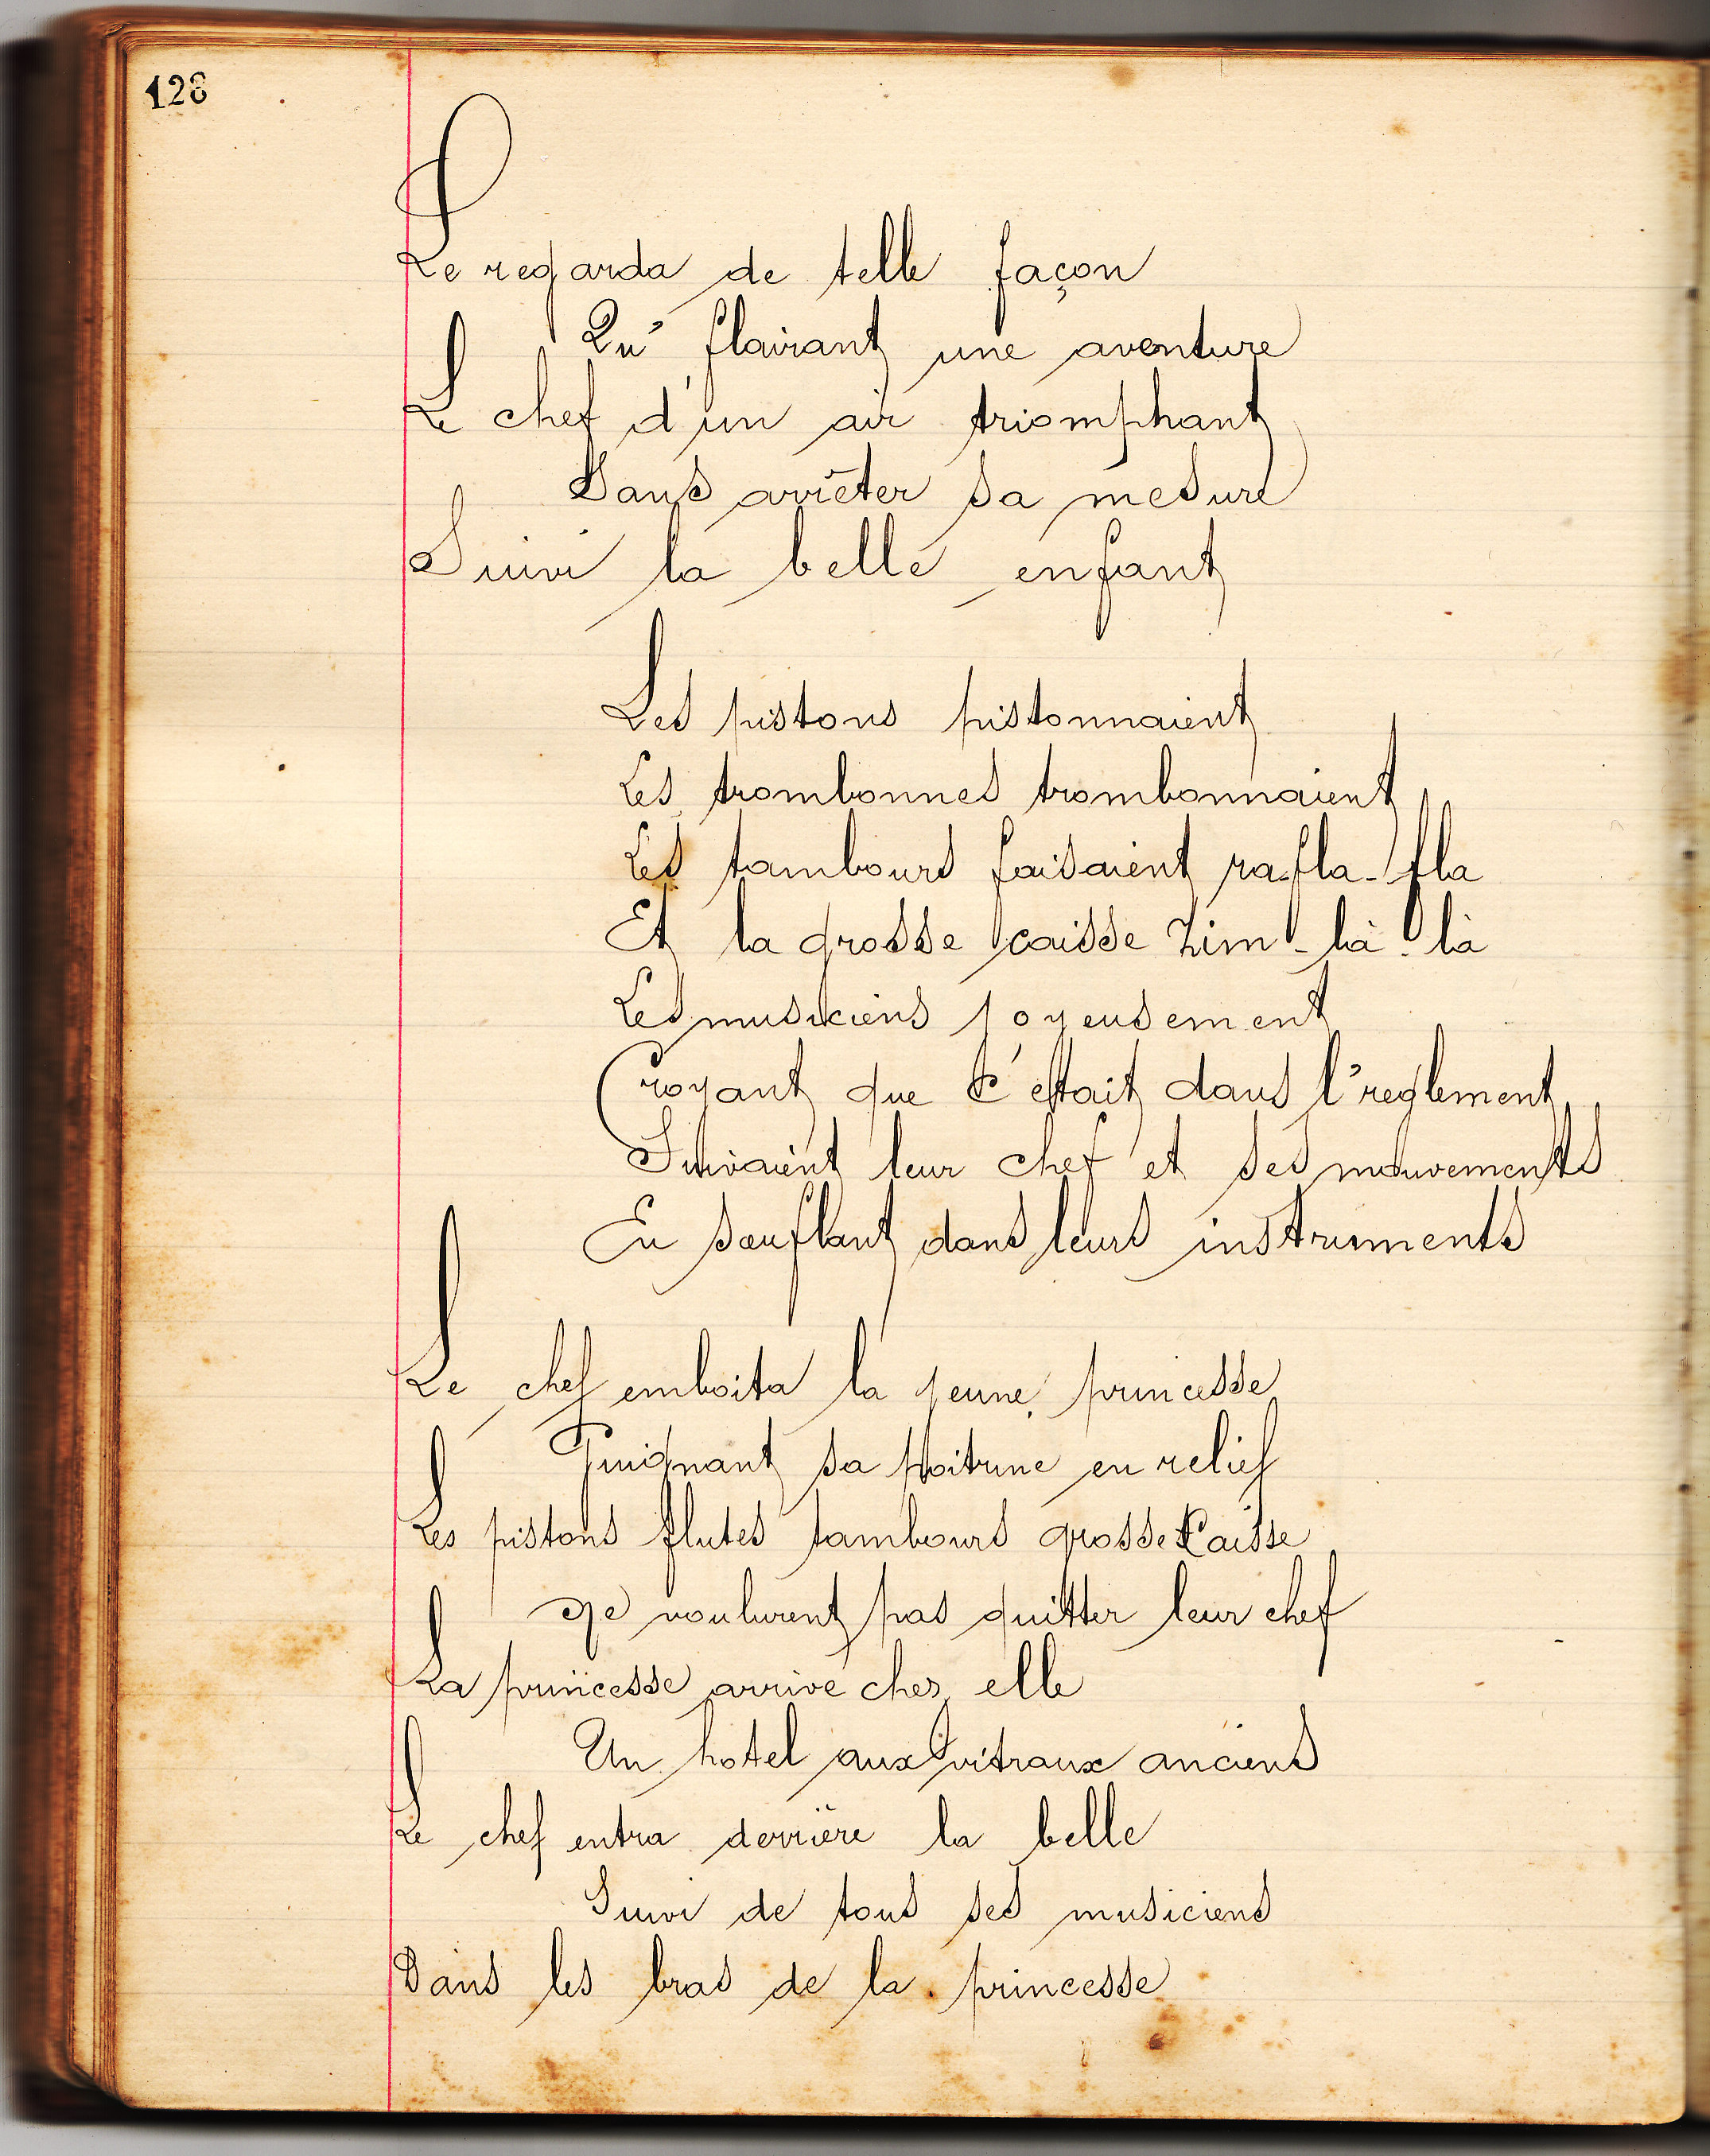 128
Le regarda de telle façon
Qu' flairant une aventure
Le chef d'un air triomphant
Sans arrêter sa mesure
Suivi la belle enfant
Les pistons pistonnaient
Les trombonnes trombonnaient
Les tambours faisaient ra-fla-fla
Et la grosse caisse Zim-là-là
Les musiciens joyeusement
Croyant que c'était dans l'reglement
Suivaient leur chef et ses mouvements
En souflant dans leurs instruments
Le chef emboita la jeune princesse
Guignant sa poitrine en relief
Les pistons flutes tambours grosse Caisse
Ne voulurent pas quitter leur chef
La princesse arrive chez elle
Un hotel aux vitraux anciens
Le chef entra derrière la belle
Suivi de tous ses musiciens
Dans les bras de la princesse